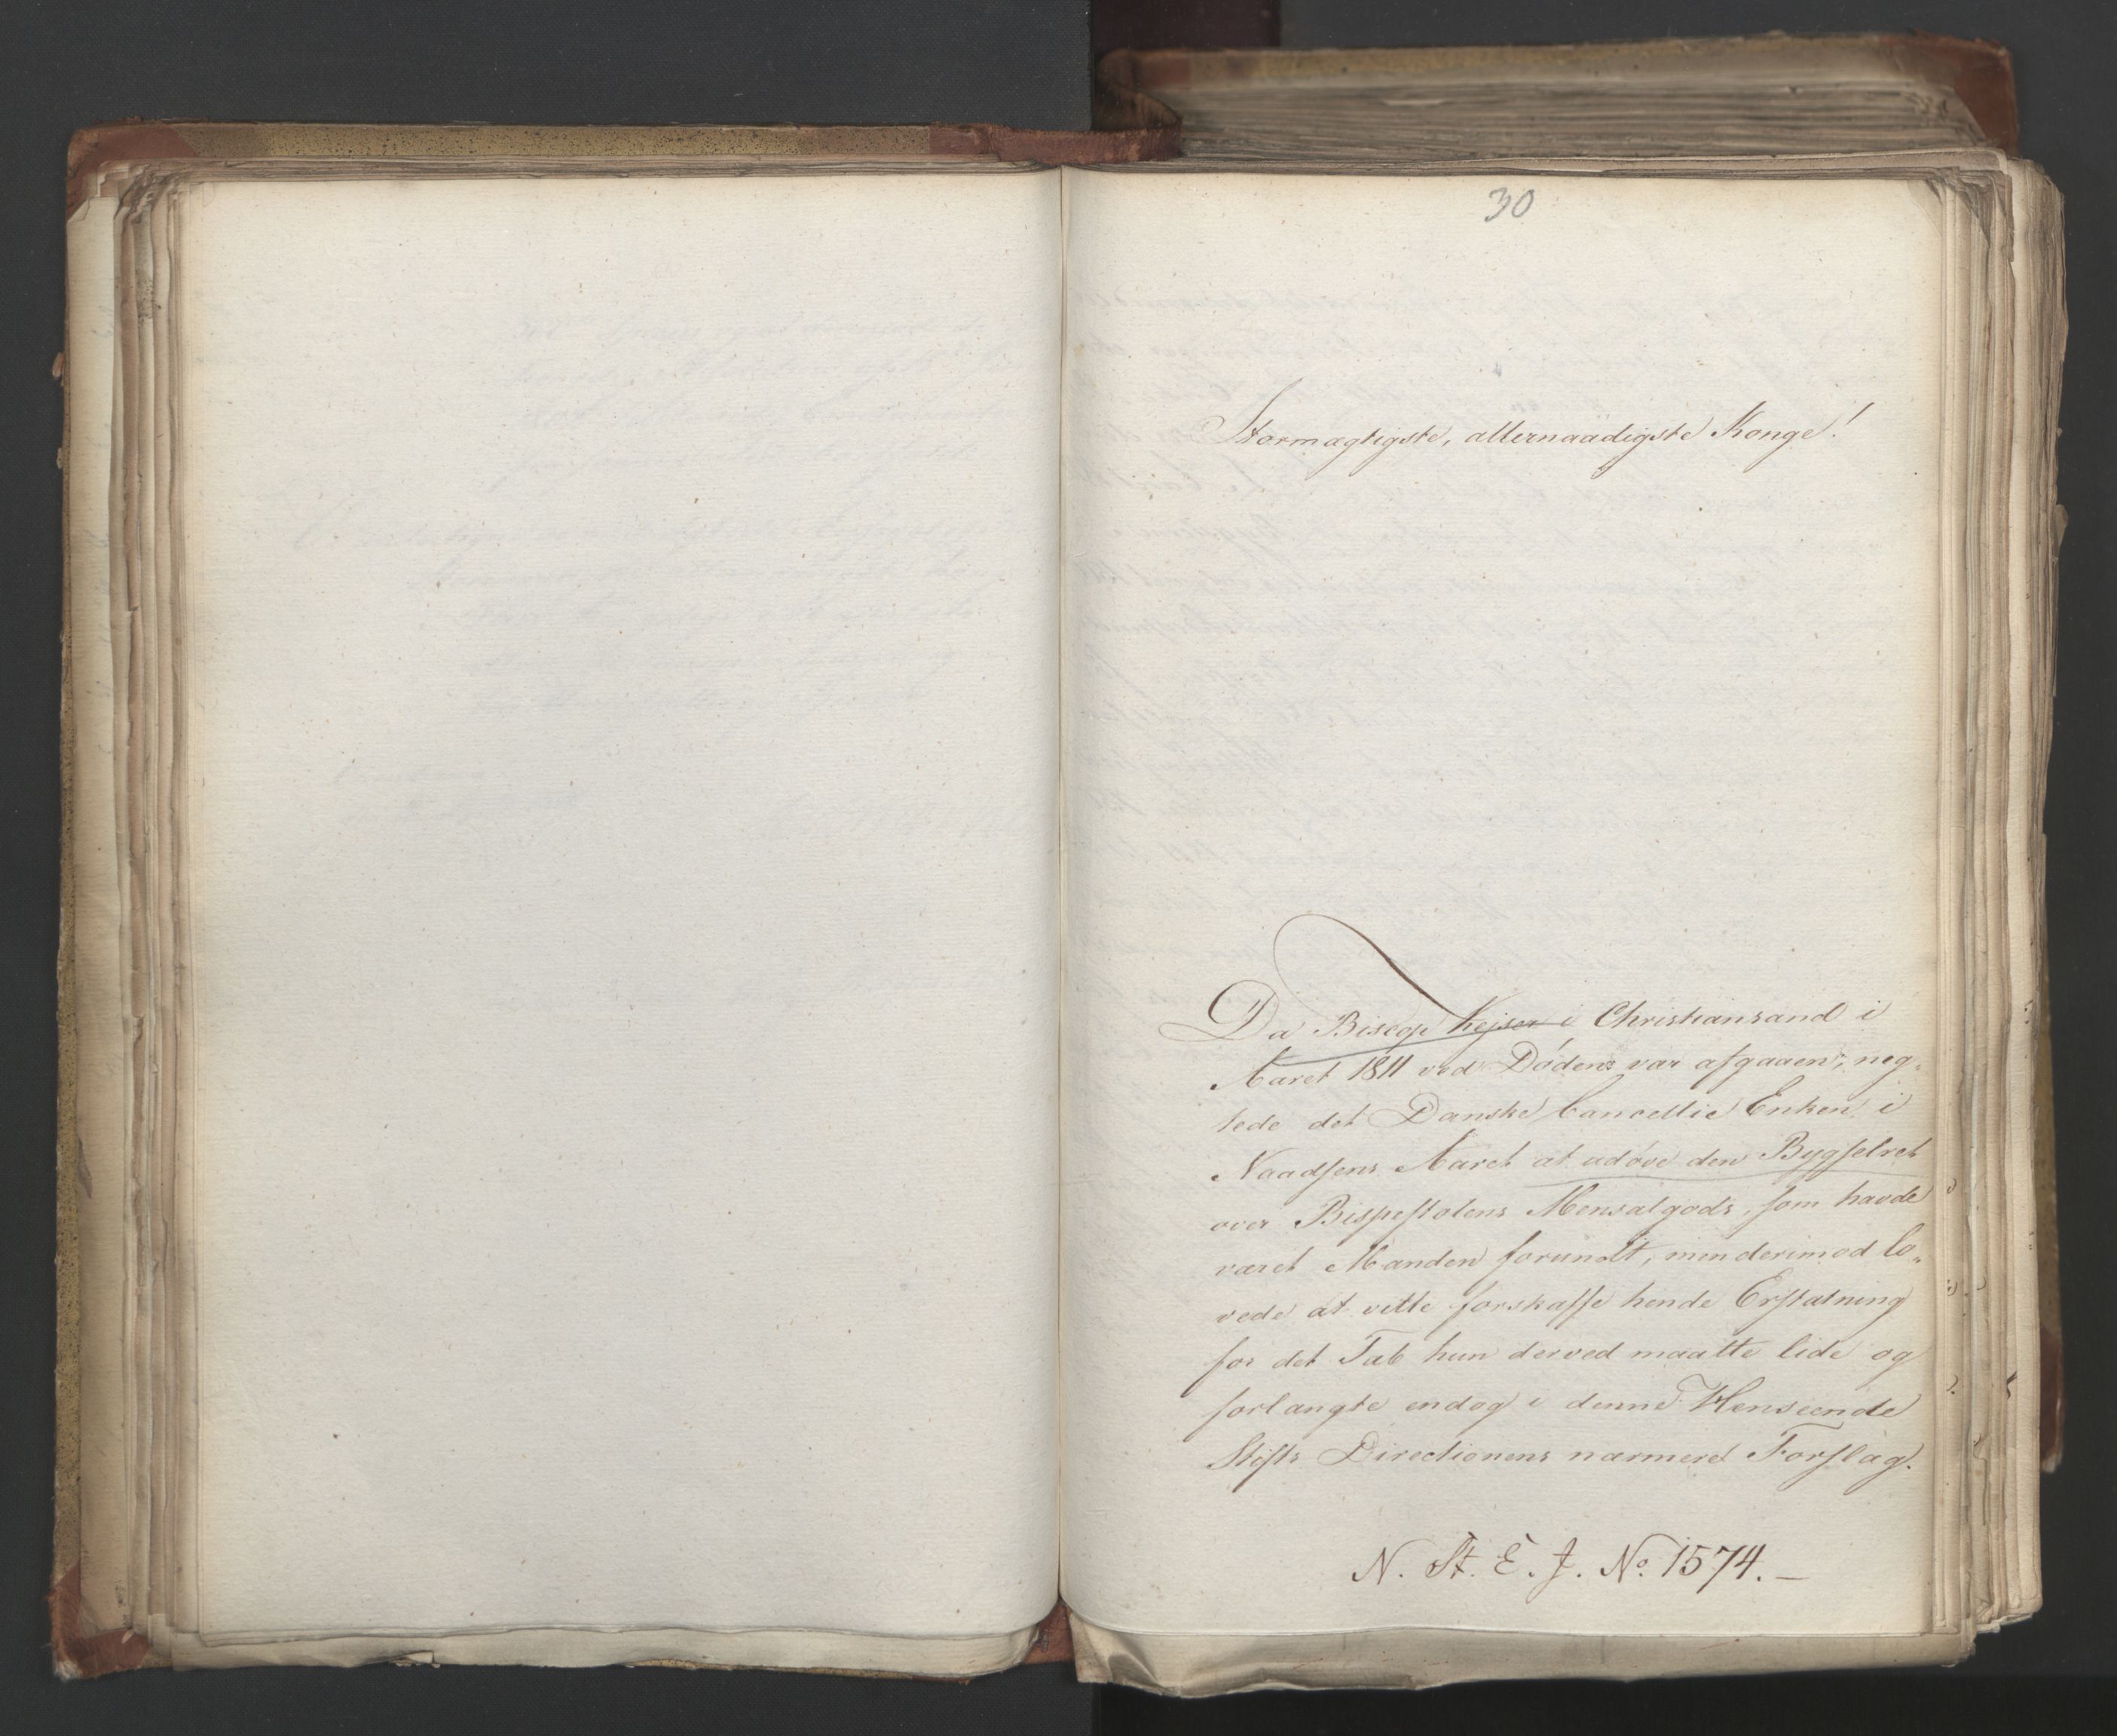 30
Stormagtigste, allernaadigste Konge!
Da Biscop Kejser i Christiansand i
Aaret 1811 ved Døden var afgaaen, neg„
tede det Danske Cancellie Enken i
Naadsens Aaret at udøve den Bygselret
over Bispestolens Mensalgods, som havde
været Manden forundt, men derimod lo„
vede at ville forskaffe hende Erstatning
for det Tab hun derved maatte lide og
forlangte endog i denne Henseende
Stifts Directionens nærmere Forslag.
N. St. E. J. No. 1574. –